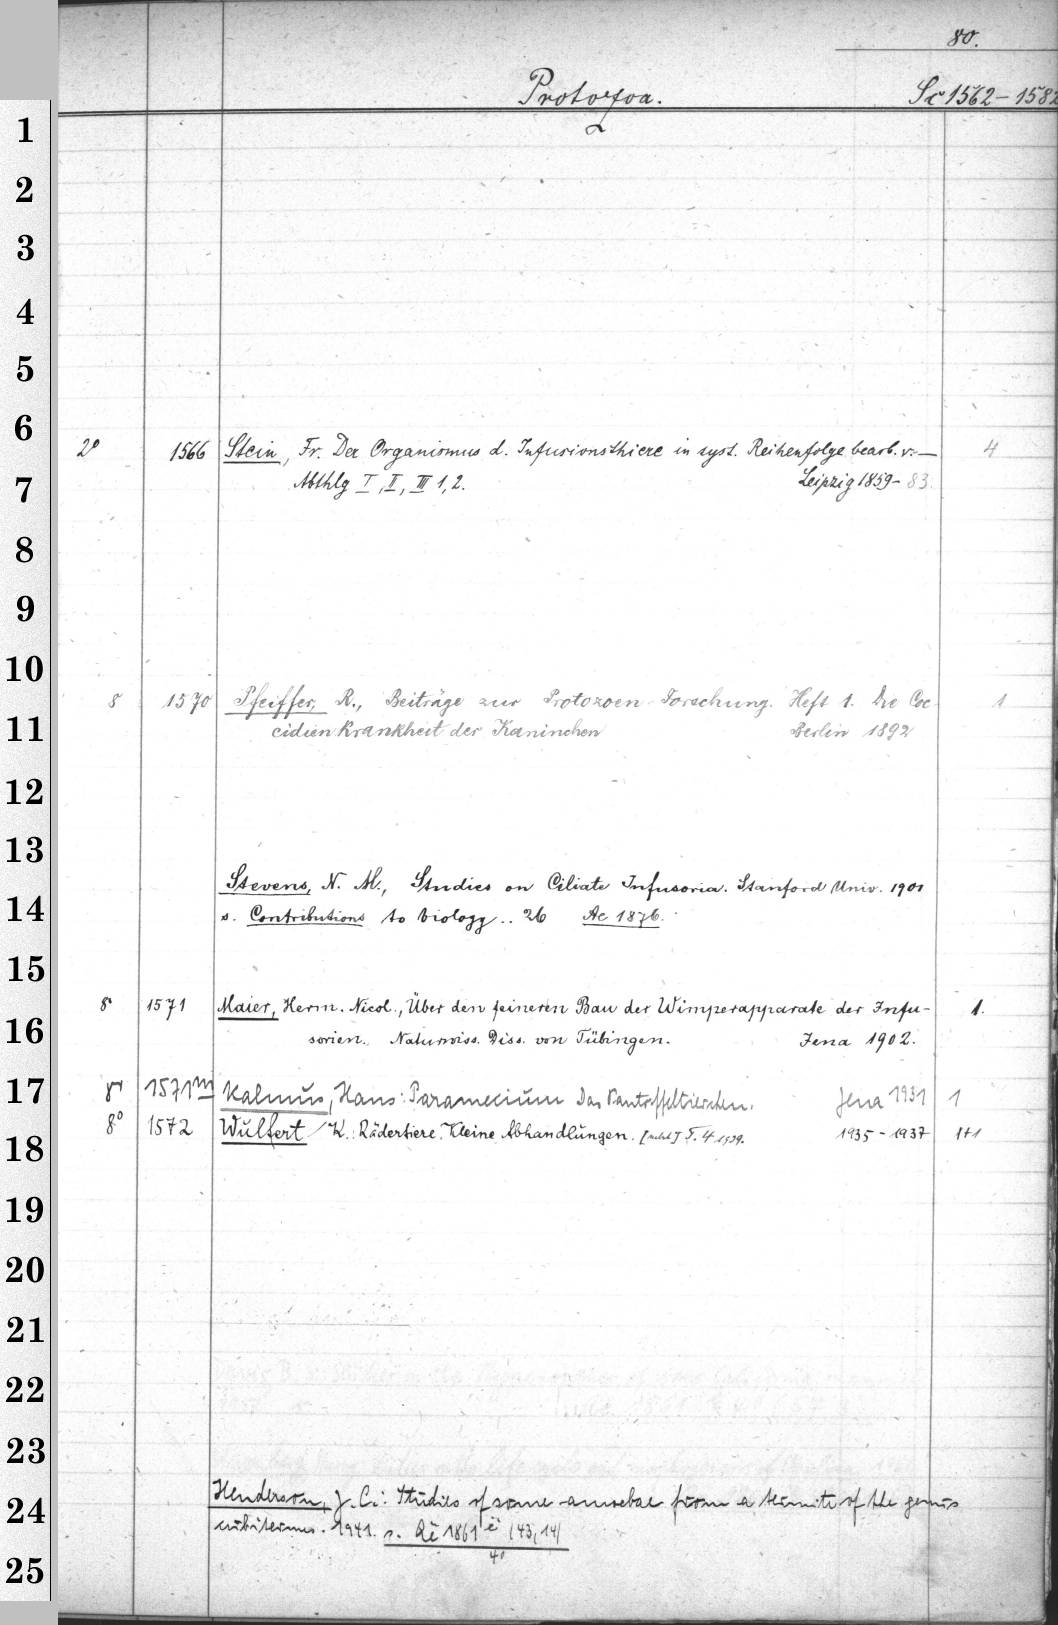 80.
Protozoa. Sc 1562 – 158
1
2
3
4
5
6
2° 1566 Stein, Fr. Der Organismus d. Infusionsthiere in syst. Reihenfolge bearb. v. — 4
7
Abthlg I, II, III 1, 2. Leipzig 1859– 83.
8
9
10
8 1570 Pfeiffer, R., Beiträge zur Protozoen-Forschung. Heft 1. Die Coc- 1
11
cidien Krankheit der Kaninchen Berlin 1892
12
13
Stevens, N. M., Studies on Ciliate Infusoria. Stanford Univ. 1901
14
s. Contributions to biology.. 26 Ac 1876.
15
8° 1571 Maier, Herm. Nicol., Über den feineren Bau der Wimperapparate der Infu- 1.
16
sorien. Naturwiss. Diss. von Tübingen. Jena 1902.
17
8° 1571m Kalmus, Hans: Paramecium Das Pantoffeltierchen. Jena 1931 1
8° 1572 Wulfert, K.: Rädertiere. Kleine Abhandlungen. 1935 – 1937 1+1
18
19
20
21
22
23
24
Henderson, J. C.: Studies of some amoebae from a termite of the genus
cubitermes. 1941. s. 1861 (43,14)
4°
25